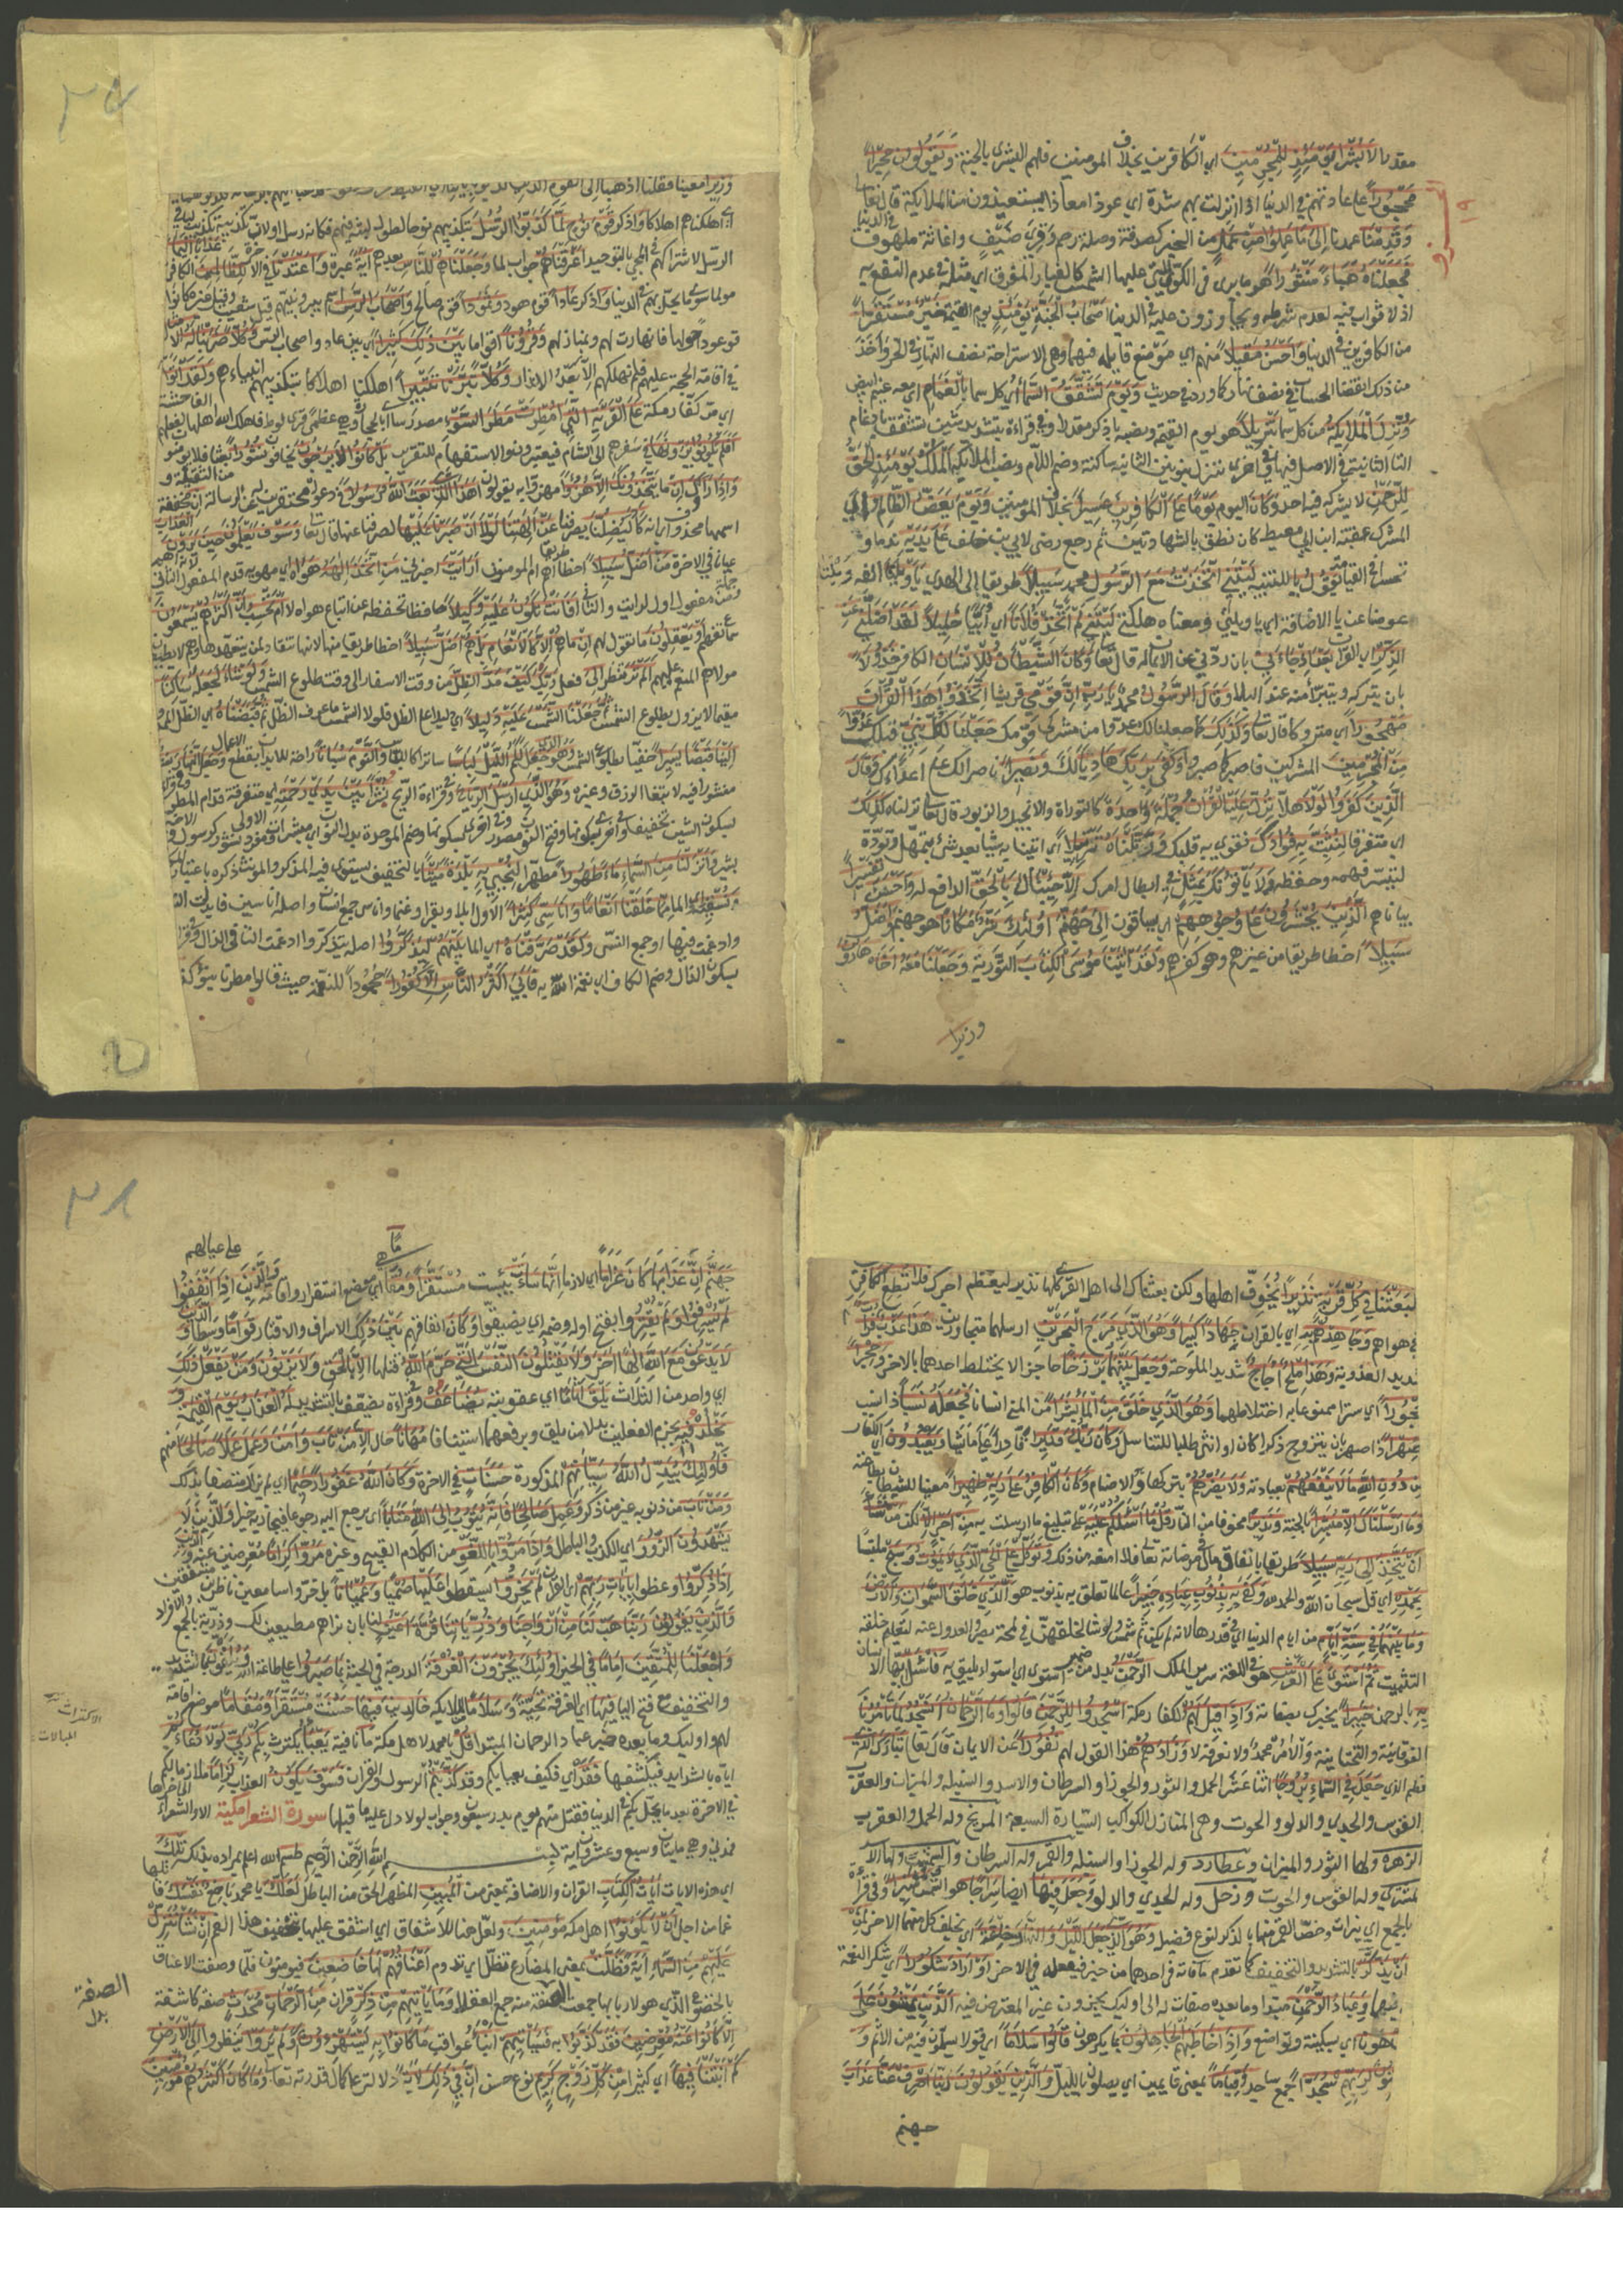 مقدرا لا بشرى يومئذ للمجرمين اي الكافرين بخلاف المومنين فلهم البشرى بالجنة ويقولون حجرا
محجورا على عادتهم في الدنيا اذا نزلت بهم شدة اي عوذا معاذا يستعيذون من الملايكة قال تعالى
وقدمنا عمدنا الى ما عملوا من عمل من الخير كصدقة وصلة رحم وقرى ضيف واغاثة ملهوف في الدنيا
فجعلناه هباء منثورا هو ما يرى في الكوى التي عليها الشمس كالغبار المفرق اي مثله في عدم النفع به
اذ لا ثواب فيه لعدم شرطه ويجازون عليه في الدنيا اصحاب الجنة يومئذ يوم القيمة خير مستقرا
من الكافرين في الدنيا واحسن مقيلا منهم اي موضع قايلة فيها وهي الاستراحة نصف النهار في الحر واخذ
من ذلك انقضا الحساب في نصف نهار كما ورد في حديث ويوم تشقق السماء اي كل سما بالغمام اي معه وهو غيم ابيض
ونزل الملايكة من كل سما تنزيلا هو يوم القيمة ونصبه باذكر مقدرا وفي قراءة بتشديد شين تشقق بادغام
التا الثانية في الاصل فيها وفي اخرى ننزل بنونين الثانية ساكنة وضم اللام ونصب الملايكة الملك يومئذ الحق
للرحمن لا يشركه فيه احد وكان اليوم يوما على الكافرين عسيرا بخلاف المومنين ويوم يعض الظالم
المشرك عقبة ابن ابي معيط كان نطق بالشهادتين ثم رجع رضى لابي بن خلف على يديه ندما و
تحسرا في القيامة يقول يا للتنبيه ليتني اتخذت مع الرسول محمد سبيلا طريقا الى الهدى يا ويلتى الفه
عوض عن يا الاضافة اي يا ويلتي ومعناه هلكتي ليتني لم اتخذ فلانا اي ابيا خليلا لقد اضلني عن
الذكر اي القران بعد اذ جاءني بان ردني عن الايمان به قال تعالى وكان الشيطان للانسان الكافر خذولا
بان يتركه ويتبرا منه عند البلا وقال الرسول محمد يا رب ان قومي قريشا اتخذوا هذا القران
مهجورا اي متروكا قال تعالى وكذلك كما جعلنا لك عدوا من مشركي قومك جعلنا لكل نبي قبلك عدوا
من المجرمين المشركين فاصبر كما صبروا وكفى بربك هاديا لك ونصيرا ناصرا لك على اعداءك وقال
الذين كفروا لولا هلا نزل عليه القران جملة واحدة كالتوراة والانجيل والزبور قال تعالى نزلناه كذلك
اي متفرقا لنثبت به فؤادك نقوي به قلبك ورتلناه ترتيلا اي اتينا به شيا بعد شئ بتمهل وتؤدة
لتيسر فهمه وحفظه ولا ياتونك بمثل في ابطال امرك الا جئناك بالحق الدافع له واحسن تفسيرا
بيانا هم الذين يحشرون على وجوههم اي يساقون الى جهنم اولئك شر مكانا هو جهنم واضل
سبيلا اخطا طريقا من غيرهم وهو كفرهم ولقد اتينا موسى الكتاب التورية وجعلنا معه اخاه هارون
وزيرا
وزيرا معينا فقلنا اذهبا الى القوم الذين كذبوا باياتنا
اي اهلكناهم اهلاكا واذكر قوم نوح لما كذبوا الرسل بتكذيبهم نوحا لطول لبثه فيهم فكانه رسل او لان تكذيبه تكذيب لباقي
الرسل لاشتراكهم في المجي بالتوحيد اغرقناهم جواب لما وجعلناهم للناس بعدهم اية عبرة واعتدنا في الاخرة للظالمين الكافرين عذابا اليما
مولما سوى ما يحل بهم في الدنيا واذكر عادا قوم هود وثمودا قوم صالح واصحاب الرس اسم بير ونبيهم قيل شعيب وقيل غيره كانوا
قعودا حولها فانهارت بهم وبمنازلهم وقرونا اقواما بين ذلك كثيرا اي بين عاد واصحاب الرس وكلا ضربنا له الامثال
في اقامة الحجة عليهم فلم نهلكهم الا بعد الانذار وكلا تبرنا تتبيرا اهلكنا اهلاكا بتكذيبهم انبياءهم ولقد اتوا
اي مر كفار مكة على القرية التي امطرت مطر السوء مصدر ساء اي بالحجارة وهي عظمى قرى لوط فاهلك الله اهلها لفعلهم الفاحشة
افلم يكونوا يرونها في سفرهم الى الشام فيعتبرون والاستفهام للتقرير بل كانوا لا يرجون يخافون نشورا بعثا فلا يومنون
واذا راوك ان ما يتخذونك الا هزوا مهزوا به يقولون اهذا الذي بعث الله رسولا في دعواه محتقرين له عن الرسالة ان مخففة من الثقيلة و
اسمها محذوف اي انه كاد ليضلنا يصرفنا عن الهتنا لولا ان صبرنا عليها لصرفنا عنها قال تعالى وسوف يعلمون حين يرون العذاب
عيانا في الاخرة من اضل سبيلا اخطا طريقا اهم ام المومنون ارايت اخبرني من اتخذ الهه هواه اي مهويه قدم المفعول الثاني لانه اهم
وجملة من مفعول اول لرايت والثاني افانت تكون عليه وكيلا حافظا تحفظه عن اتباع هواه لا ام تحسب ان اكثرهم يسمعون
سماع تفهم او يعقلون ما تقول لهم ان ما هم الا كالانعام بل هم اضل سبيلا اخطا طريقا منها لانها تنقاد لمن يتعهدها وهم لا يطيعون
مولاهم المنعم عليهم الم تر تنظر الى فعل ربك كيف مد الظل من وقت الاسفار الى وقت طلوع الشمس ولو شاء لجعله ساكنا
مقيما لا يزول بطلوع الشمس ثم جعلنا الشمس عليه دليلا اي الظل فلولا الشمس ما عرف الظل ثم قبضناه اي الظل الممدود
الينا قبضا يسيرا خفيا بطلوع الشمس وهو الذي جعل لكم الليل لباسا ساترا كاللباس والنوم سباتا راحة للابدان بقطع الاعمال وجعل النهار نشورا
منشورا فيه لابتغا الرزق وغيره وهو الذي ارسل الرياح وفي قراءة الريح نشرا بين يدي رحمته اي متفرقة قدام المطر وفي قراءة
بسكون الشين تخفيفا وفي اخرى بسكونها وفتح النون مصدر وفي اخرى بسكونها وضم الموحدة بدل النون اي مبشرات ومفرد الاولى نشور كرسول والاخيرة
بشير وانزلنا من السماء ماء طهورا مطهرا لنحيي به بلدة ميتا بالتخفيف يستوي فيه المذكر والمونث ذكره باعتبار المكان
ونسقيه اي الما مما خلقنا انعاما واناسي كثيرا الاول ابلا وبقرا وغنما واناسي جمع انسان واصله اناسين فابدلت النون
وادغمت فيها او جمع انسي ولقد صرفناه اي الما بينهم ليذكروا اصله يتذكروا ادغمت التا في الذال وفي قراءة
بسكون الذال وضم الكاف اي نعمة الله به فابى اكثر الناس الا كفورا جحودا للنعمة حيث قالوا مطرنا بنوء كذا
لبعثنا في كل قرية نذيرا يخوف اهلها ولكن بعثناك الى اهل القرى كلها نذيرا ليعظم اجرك فلا تطع الكافرين
في هواهم وجاهدهم به اي بالقران جهادا كبيرا وهو الذي مرج البحرين ارسلهما متجاورين هذا عذب فرات
شديد العذوبة وهذا ملح اجاج شديد الملوحة وجعل بينهما برزخا حاجزا لا يختلط احدهما بالاخر وحجرا
محجورا اي سترا ممنوعا به اختلاطهما وهو الذي خلق من الماء بشرا من المني انسانا فجعله نسبا ذا نسب
وصهرا ذا صهر بان يتزوج ذكرا كان او انثى طلبا للتناسل وكان ربك قديرا قادرا على ما يشا ويعبدون اي الكفار
من دون الله ما لا ينفعهم بعبادته ولا يضرهم بتركها وهو الاصنام وكان الكافر على ربه ظهيرا معينا للشيطان بطاعته
وما ارسلناك الا مبشرا بالجنة ونذيرا مخوفا من النار قل ما اسئلكم عليه على تبليغ ما ارسلت به من اجر الا لكن من شاء
ان يتخذ الى ربه سبيلا طريقا بانفاق ماله في مرضاته تعالى فلا امنعه من ذلك وتوكل على الحي الذي لا يموت وسبح متلبسا
بحمده اي قل سبحان الله والحمد لله وكفى به بذنوب عباده خبيرا عالما تعلق به بذنوب هو الذي خلق السموات والارض
وما بينهما في ستة ايام من ايام الدنيا اي في قدرها لانه لم يكن ثم شمس ولو شا لخلقهن في لمحة والعدول عنه لتعليم خلقه
التثبت ثم استوى على العرش هو في اللغة سرير الملك الرحمن بدل من ضمير استوى اي استواء يليق به فاسئل ايها الانسان
به بالرحمن خبيرا يخبرك بصفاته واذا قيل لهم لكفار مكة اسجدوا للرحمن قالوا وما الرحمان انسجد لما تامرنا
بالفوقانية والتحتانية والامر محمد ولا نعرفه لا وزادهم هذا القول لهم نفورا عن الايمان قال تعالى تبارك
الذي جعل في السماء بروجا اثنا عشر الحمل والثور والجوزا والسرطان والاسد والسنبلة والميزان والعقرب
القوس والجدي والدلو والحوت وهي المنازل الكواكب السيارة السبعة المريخ وله الحمل والعقرب
الزهرة ولها الثور والميزان وعطارد وله الجوزا والسنبلة والقمر وله السرطان والشمس ولها الاسد
المشتري وله القوس والحوت وزحل وله الجدي والدلو وجعل فيها ايضا سراجا هو الشمس وقمرا منيرا وفي قراءة
بالجمع اي نيرات وخص القمر منها بالذكر لنوع فضيلة وهو الذي جعل الليل والنهار خلفة اي يخلف كل منهما الاخر لمن
ان يذكر بالتشديد والتخفيف كما تقدم ما فاته في احدهما من خير فيفعله في الاخر او اراد شكورا اي شكر النعمة
فيهما وعباد الرحمن مبتدا وما بعده صفات له الى اوليك يجزون غير المعترض فيه الذين يمشون على
هونا اي بسكينة وتواضع واذا خاطبهم الجاهلون بما يكرهون قالوا سلاما اي قولا يسلمون فيه من الاثم و
لربهم سجدا جمع ساجد وقياما بمعنى قايمين اي يصلون بالليل والذين يقولون ربنا اصرف عنا عذاب
جهنم
على عيالهم
جهنم ان عذابها كان غراما اي لازما انها ساءت بيست مستقرا ومقاما هي اي موضع استقرار واقامة والذين اذا انفقوا
لم يسرفوا ولم يقتروا بفتح اوله وضمه اي يضيقوا وكان انفاقهم بين ذلك الاسراف والاقتار قواما وسطا والذين
لا يدعون مع الله الها اخر ولا يقتلون النفس التي حرم الله قتلها الا بالحق ولا يزنون ومن يفعل ذلك
اي واحد من الثلاث يلق اثاما اي عقوبة يضاعف وفي قراءة يضعف بالتشديد له العذاب يوم القيمة و
يخلد فيه بجزم الفعلين بدلا من يلق وبرفعهما استينافا مهانا حال الا من تاب وامن وعمل عملا صالحا منهم
فاوليك يبدل الله سيئاتهم المذكورة حسنات في الاخرة وكان الله غفورا رحيما اي لم يزل متصفا بذلك
ومن تاب من ذنوبه غير من ذكر وعمل صالحا فانه يتوب الى الله متابا اي يرجع اليه رجوعا فيجازيه خيرا والذين لا
يشهدون الزور اي الكذب والباطل واذا مروا باللغو من الكلام القبيح وغيره مروا كراما معرضين عنه والذين
اذا ذكروا وعظوا بايات ربهم اي القران لم يخروا يسقطوا عليها صما وعميانا بل خروا سامعين ناظرين منتفعين
والذين يقولون ربنا هب لنا من ازواجنا وذرياتنا قرة اعين لنا بان نراهم مطيعين لك وذرية بالجمع والافراد
واجعلنا للمتقين اماما في الخير اوليك يجزون الغرفة الدرجة في الجنة بما صبروا على طاعة الله ويلقون بالتشديد
والتخفيف مع فتح اليا فيها اي الغرفة تحية وسلاما من الملايكة خالدين فيها حسنت مستقرا ومقاما موضع اقامة
لهم واوليك وما بعده خبر عباد الرحمان المبتدا قل يا محمد لاهل مكة ما نافية يعبأ يكترث بكم ربي لولا دعاءكم
اياه بالشدايد فيكشفها فقد اي فكيف يعبا بكم وقد كذبتم الرسول والقران فسوف يكون العذاب لزاما ملازما لكم
في الاخرة بعد ما يحل بكم في الدنيا فقتل منهم يوم بدر سبعون وجواب لولا دل عليه ما قبلها سورة الشعرا مكية الا والشعراء الى اخرها
فمدني وهي مايتان وسبع وعشرون اية بسم الله الرحمن الرحيم طسم الله اعلم بمراده بذلك تلك
اي هذه الايات ايات الكتاب القران والاضافة بمعنى من المبين المظهر الحق من الباطل لعلك يا محمد باخع نفسك قاتلها
غما من اجل ان لا يكونوا اهل مكة مؤمنين ولعل هنا للاشفاق اي اشفق عليها بتخفيف هذا الغم ان نشا ننزل
عليهم من السماء اية فظلت بمعنى المضارع تظل اي تدوم اعناقهم لها خاضعين فيومنون فلما وصفت الاعناق
بالخضوع الذي هو لاربابها جمعت الصفة منه جمع العقلا وما ياتيهم من ذكر قران من الرحمان محدث صفة كاشفة
الا كانوا عنه معرضين فقد كذبوا به فسيأتيهم انباء عواقب ما كانوا به يستهزؤن اولم يروا ينظروا الى الارض
كم انبتنا فيها اي كثيرا من كل زوج كريم نوع حسن ان في ذلك لاية دلالة على كمال قدرته تعالى وما كان اكثرهم مؤمنين
الاكتراث
المبالات
الصفة
بدل